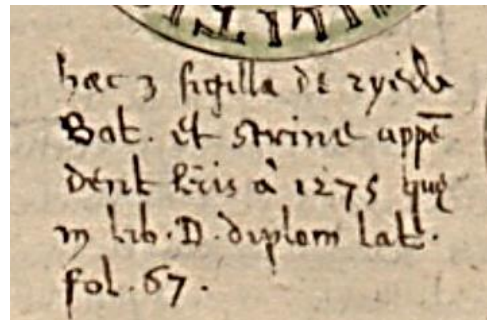 hæc 3 sigilla de
Bat. et Strine appē
dent lris à 1275 quę
in lib. D. diplom lat.
fol. 67.